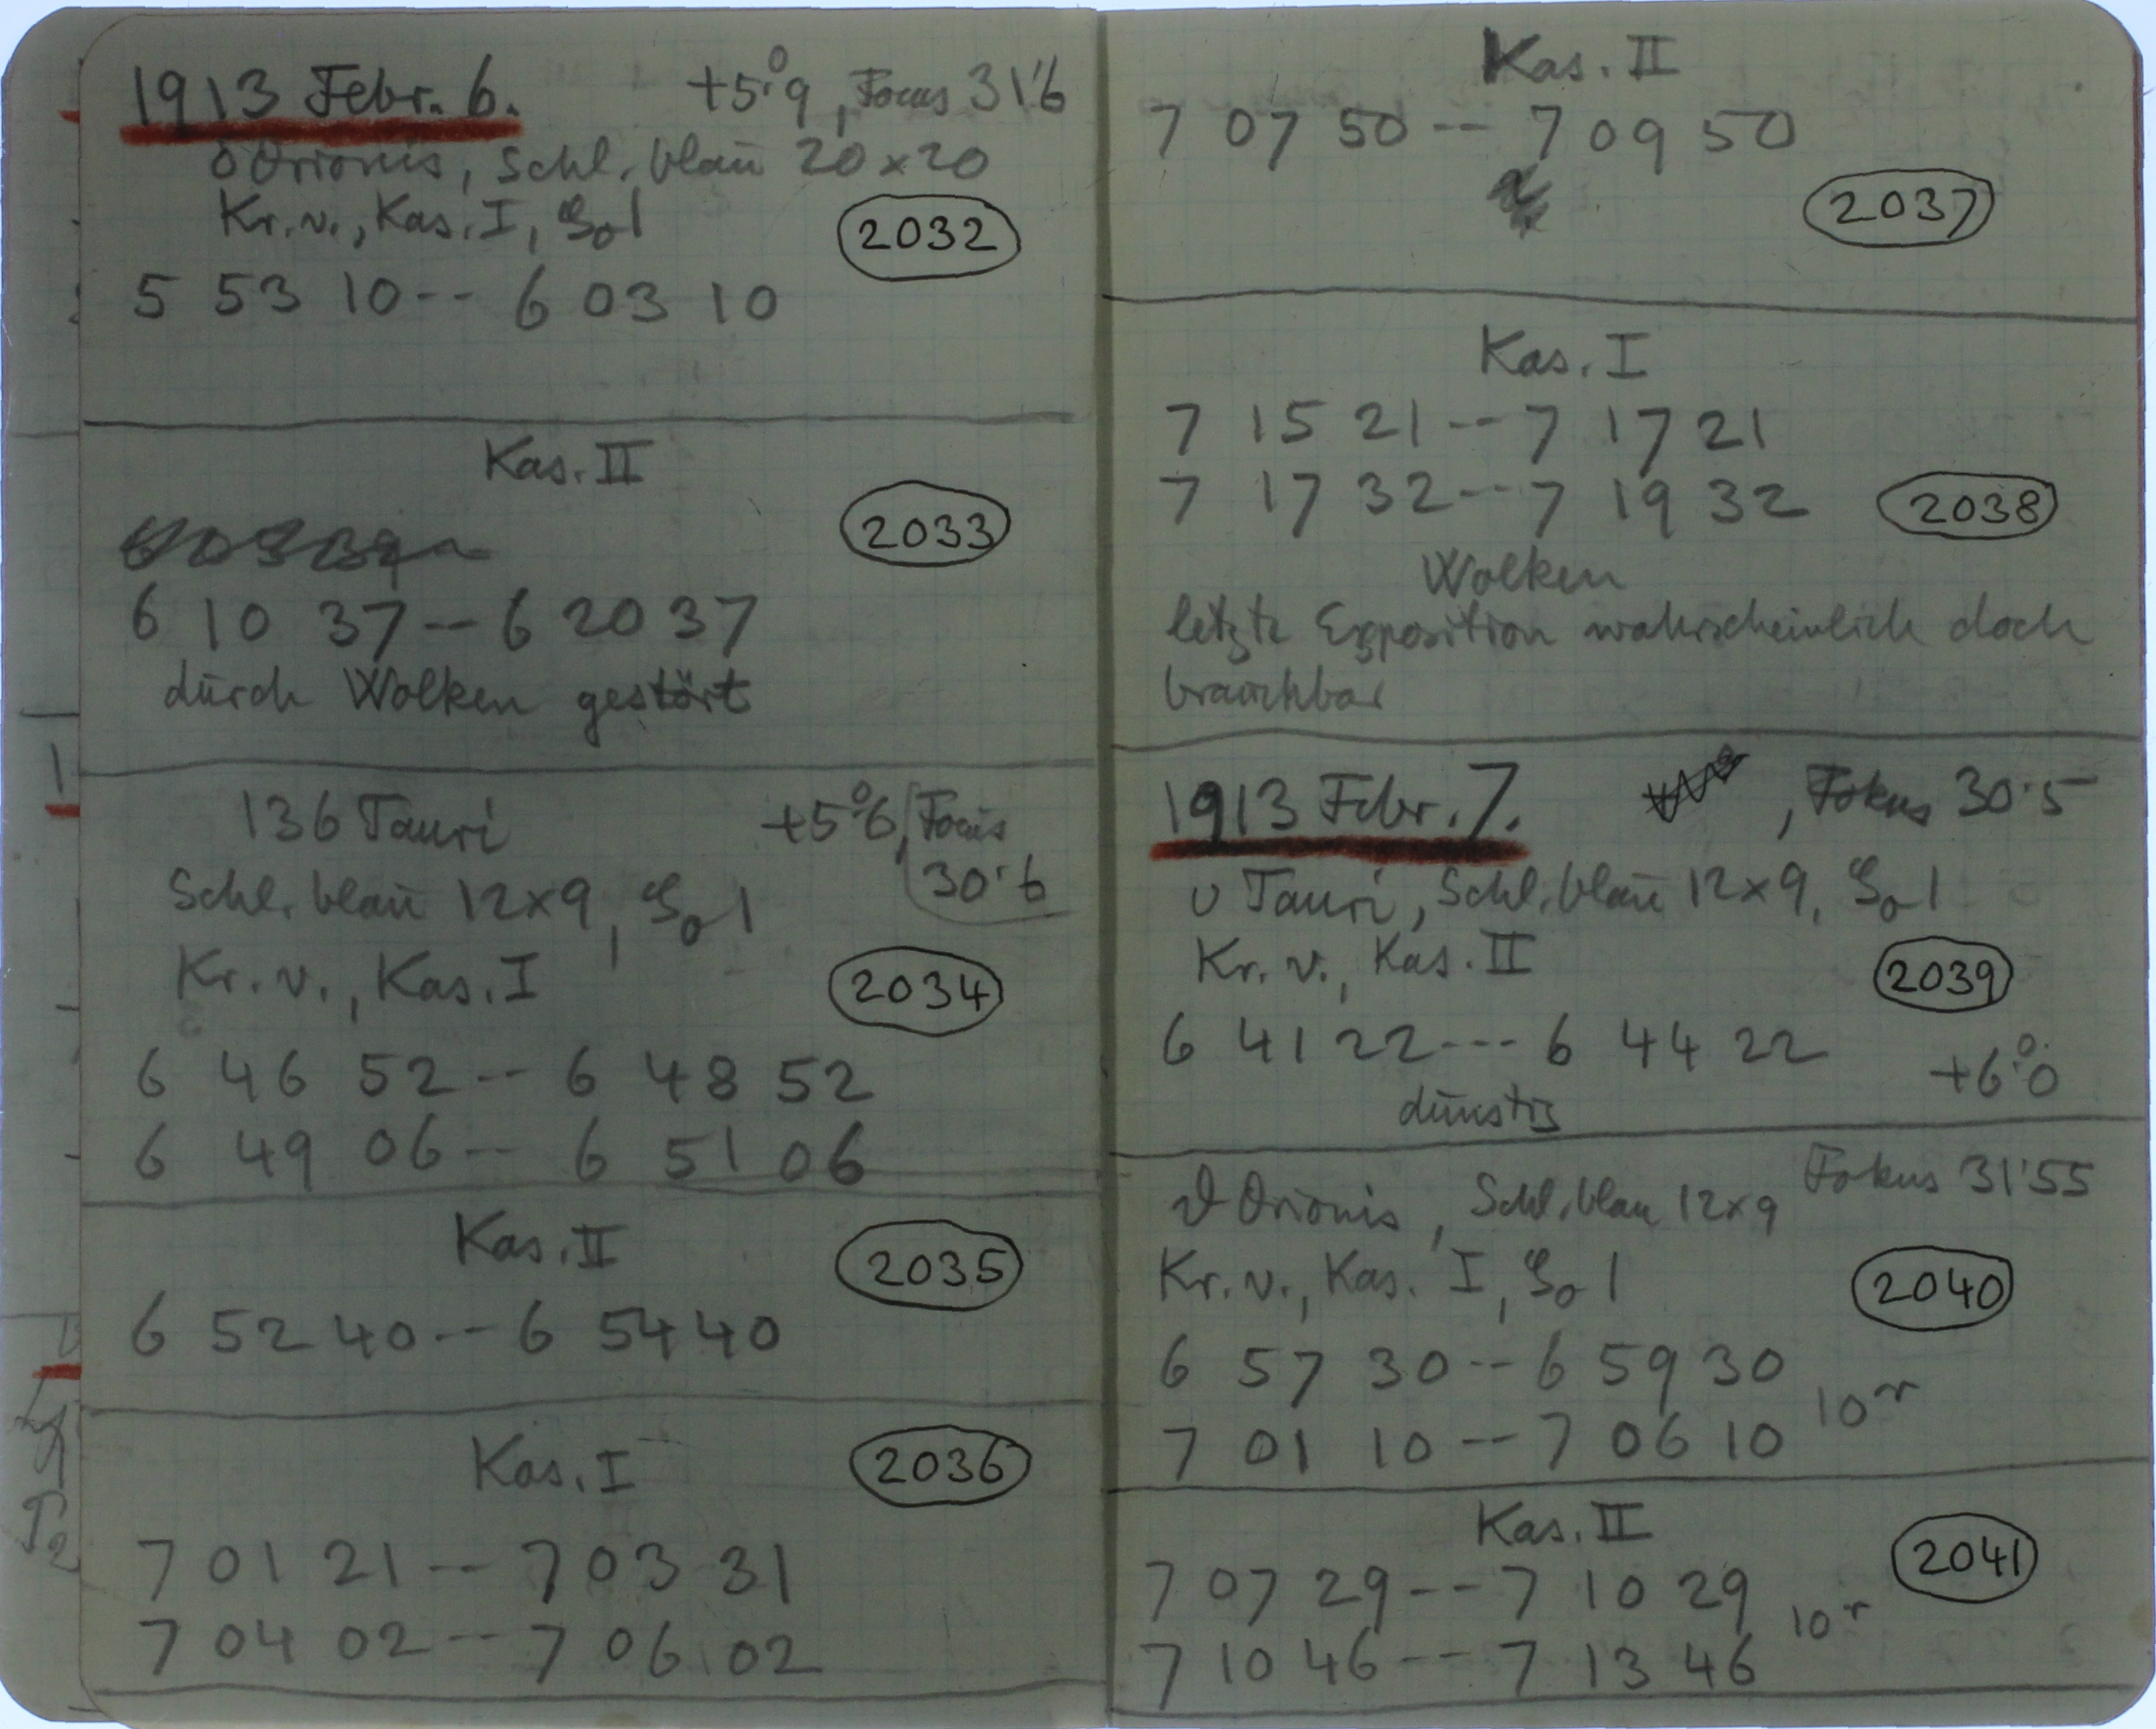 1913 Febr. 6. +5°.9, Focus 31'6
Orionis, Schl. blau 20×20
Kr. v., Kas. I, 1
2032
5 53 10 -- 6 03 10
Kas. II
2033
6 10 37 -- 6 20 37
durch Wolken gestört
136 Tauri +5°.6, Focus
30'6
Schl. blau 12×9, 1
Kr. v., Kas. I
2034
6 46 52 -- 6 48 52
6 49 06 -- 6 51 06
Kas. II
2035
6 52 40 -- 6 54 40
Kas. I
2036
7 01 21 -- 7 03 31
7 04 02 -- 7 06 02
Kas. II
7 07 50 -- 7 09 50
2037
Kas. I
7 15 21 -- 7 17 21
7 17 32 -- 7 19 32
2038
Wolken
letzte Exposition wahrscheinlich doch
brauchbar
1913 Febr. 7. , Fokus 30'5
υ Tauri, Schl. blau 12×9, 1
Kr. v., Kas. II
2039
6 41 22 --- 6 44 22
+6°.0
dunstig
ϑ Orionis, Schl. blau 12×9 Fokus 31'55
Kr. v., Kas. I, 1
2040
6 57 30 -- 6 59 30
7 01 10 -- 7 06 10
10
Kas. II
2041
7 07 29 -- 7 10 29
7 10 46 -- 7 13 46
10